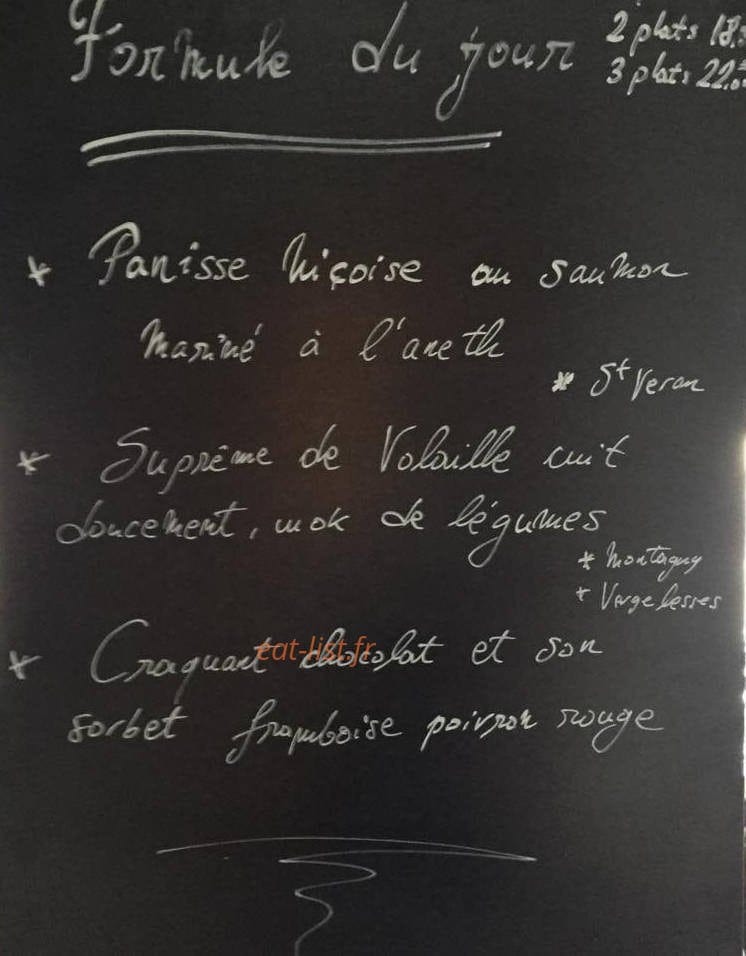 Formule du jour
2 plats 18.
3 plats 22.
* Panisse Niçoise au saumon
mariné à l'aneth
* St Veran
* Suprême de Volaille cuit
doucement, wok de légumes
* Montagny
* Vergelesses
* Craquant chocolat et son
eat-list.fr
sorbet framboise poivron rouge